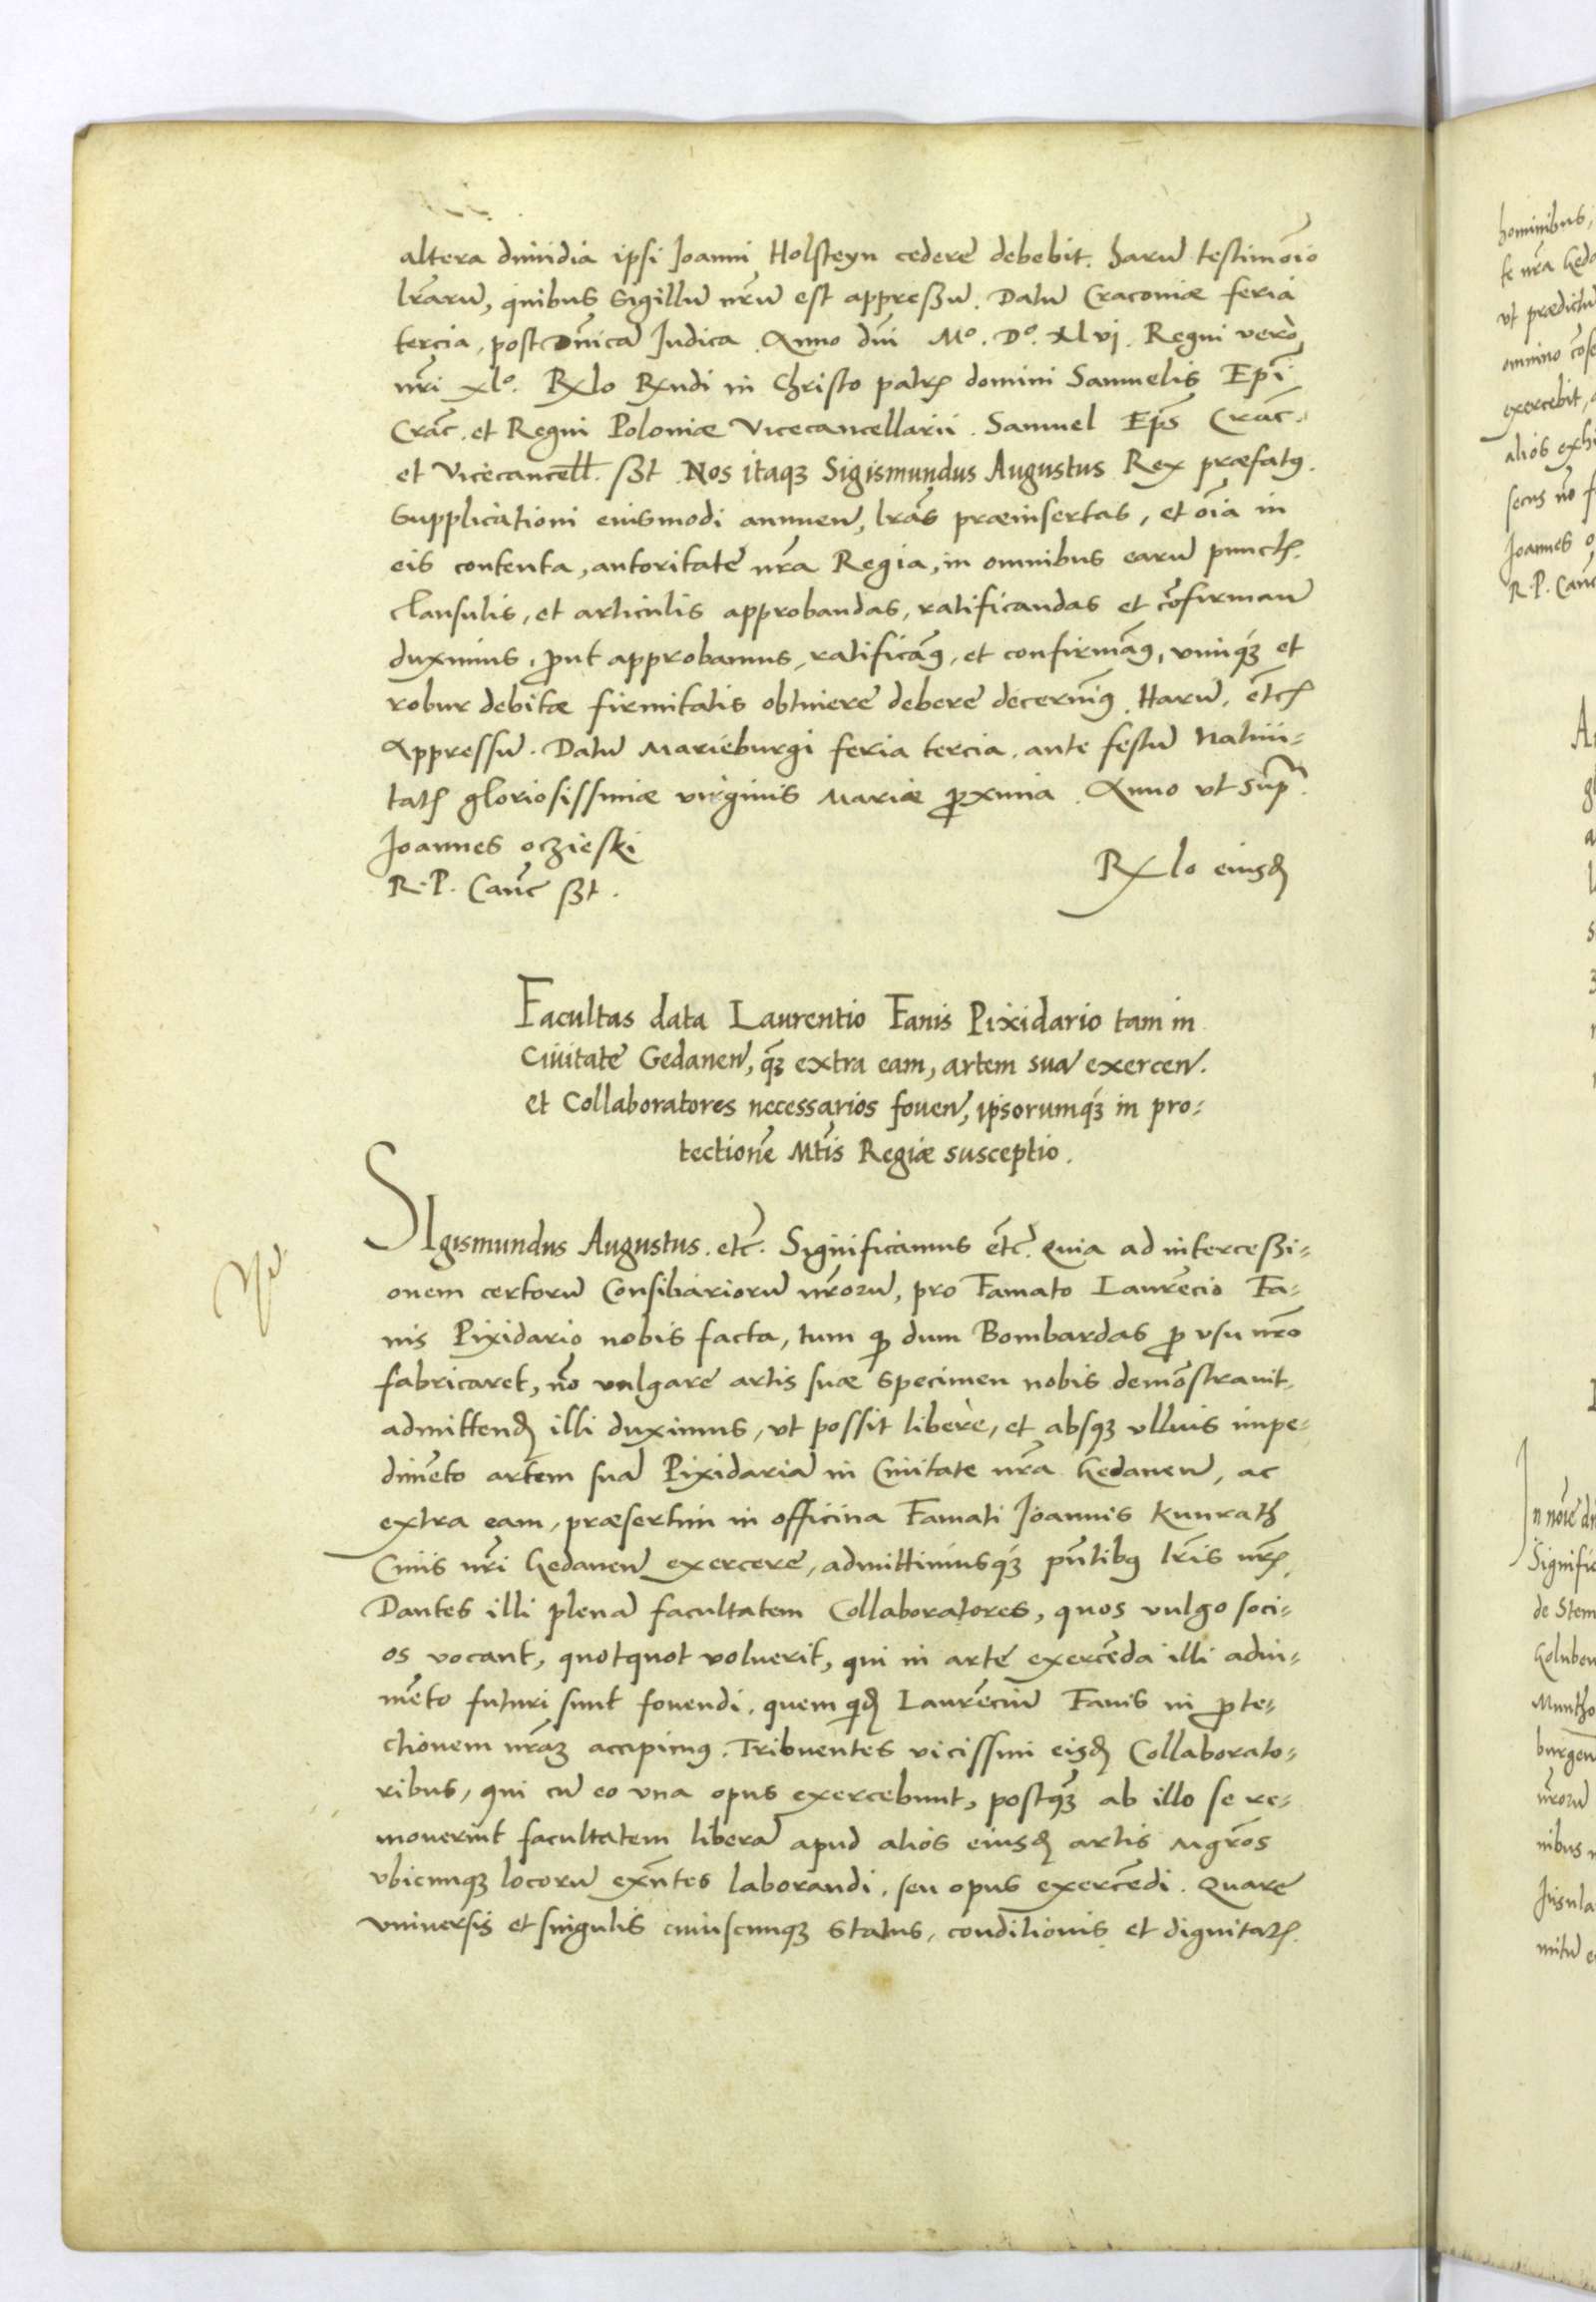 altera dimidia ipsi Joanni Holsteyn cedere debebit. harũ testimõio
lr̃arũ, quibus Sigillũ nr̃m est appreßũ. Datũ Cracoviæ feria
tercia, post Dñicã Judica. Anno dñi Mº. Dº. xlvi. Regni vero
nr̃i xlº. Rxlo Rxndi in Christo patrꝭ domini Samuelis Ep̃i
Crac̃. et Regni Poloniæ Vicecancellarii. Samuel Ep̃s Crac̃.
et Vicecancell̃. sszt. Nos itaqꝫ Sigismundus Augustus Rex præfatꝰ.
Supplicationi eiusmodi annuen̄, lr̃as præinsertas, et oĩa in
eis contenta, autoritate nr̃a Regia, in omnibus earũ punctꝭ.
clausulis, et articulis approbandas, ratificandas et cõfirman̄
duximus, ꝓut approbamus, ratificãꝰ, et confirmãꝰ, vimqꝫ et
robur debitæ firmitatis obtinere debere decernĩꝰ. Harũ, et̃cꝭ
Appressũ. Datũ Marieburgi feria tercia ante festũ Nativi-
tatꝭ gloriosissimæ virginis Mariæ ꝓxima. Anno vt sup̃.
Joannes oczieski
R. P. Canc̃ sszt.
Rxlo eiusđ
Facultas data Laurentio Fanis Pixidario tam in
Civitate Gedanen̄, qꝫ extra eam, artem suã exercen̄.
et Collaboratores necessarios foven̄, ipsorumqꝫ in pro-
tectionẽ Mt̃is Regiæ susceptio.
SIgismundus Augustus. etc̃. Significamus et̃c. Quia ad interceßi-
onem certorũ Consiliariorũ nr̃orũ, pro Famato Laurẽcio Fa-
nis Pixidario nobis facta, tum ꝙ dum Bombardas ꝓ vsu nr̃o
fabricaret, nõ vulgare artis suæ specimen nobis demõstravit,
admittenđ illi duximus, vt possit libere, et absqꝫ vlluis impe-
dimẽto artem suã Pixidariã in Civitate nr̃a Gedanen̄, ac
extra eam, præsertim in officina Famati Joannis Kunrath
Civis nr̃i Gedanen̄ exercere, admittimusqꝫ pñtibꝰ lr̃is nr̃ꝭ,
Dantes illi plenã facultatem Collaboratores, quos vulgo soci-
os vocant, quotquot voluerit, qui in arte exercẽda illi adiu-
mẽto futuri sunt fovendi, quem qđ Laurẽciũ Fanis in ꝓte-
ctionem nr̃aꝫ accipimꝰ. Tribuentes vicissim eisđ Collaborato-
ribus, qui cũ eo vna opus exercebunt, postqꝫ ab illo se re-
moverint facultatem liberã apud alios eiusđ artis Mgr̃os
vbicunqꝫ locorũ exñtes laborandi, seu opus exercẽdi. Quare
vniversis et singulis cuiuscunqꝫ status, conditionis et dignitatꝭ.